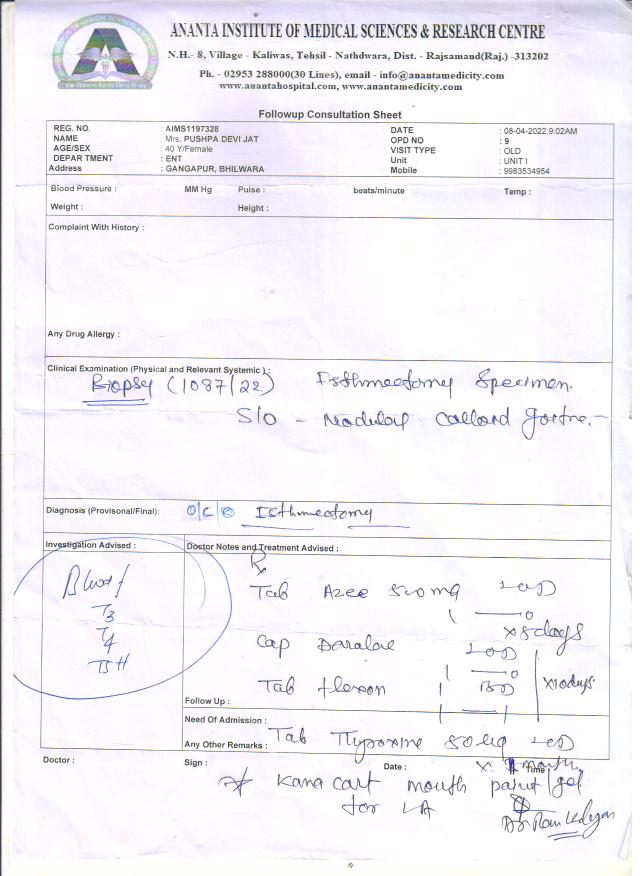 ANANTA INSTITUTE OF MEDICAL SCIENCES & RESEARCH CENTRE
N.H.- 8, Village - Kaliwas, Tehsil - Nathdwara, Dist. - Rajsamand(Raj.) -313202
Ph. - 02953 288000(30 Lines), email - info@anantamedicity.com
www.anantahospital.com, www.anantamedicity.com
Followup Consultation Sheet
REG. NO. : AIMS1197328 DATE : 08-04-2022,9:02AM
NAME : Mrs. PUSHPA DEVI JAT OPD NO : 9
AGE/SEX : 40 Y/Female VISIT TYPE : OLD
DEPARTMENT : ENT Unit : UNIT I
Address : GANGAPUR, BHILWARA Mobile : 9983534954
Blood Pressure : MM Hg Pulse : beats/minute Temp :
Weight : Height :
Complaint With History :
Any Drug Allergy :
Clinical Examination (Physical and Relevant Systemic ) :
Biopsy (1087/22) Isthmectomy Specimen.
S/O - Nodular
Diagnosis (Provisonal/Final): O/C/O Isthmectomy
Investigation Advised : Doctor Notes and Treatment Advised :
Blood
T3
T4
TSH
Rx
Tab Azee 500mg
1 — 0
x 5 days
Cap
1 — 0
Tab BD x10days
1 — 1
Follow Up :
Need Of Admission :
Tab Thyroxine 50
Any Other Remarks :
Doctor : Sign : Date : Time :
mouth paint/gel
for LA